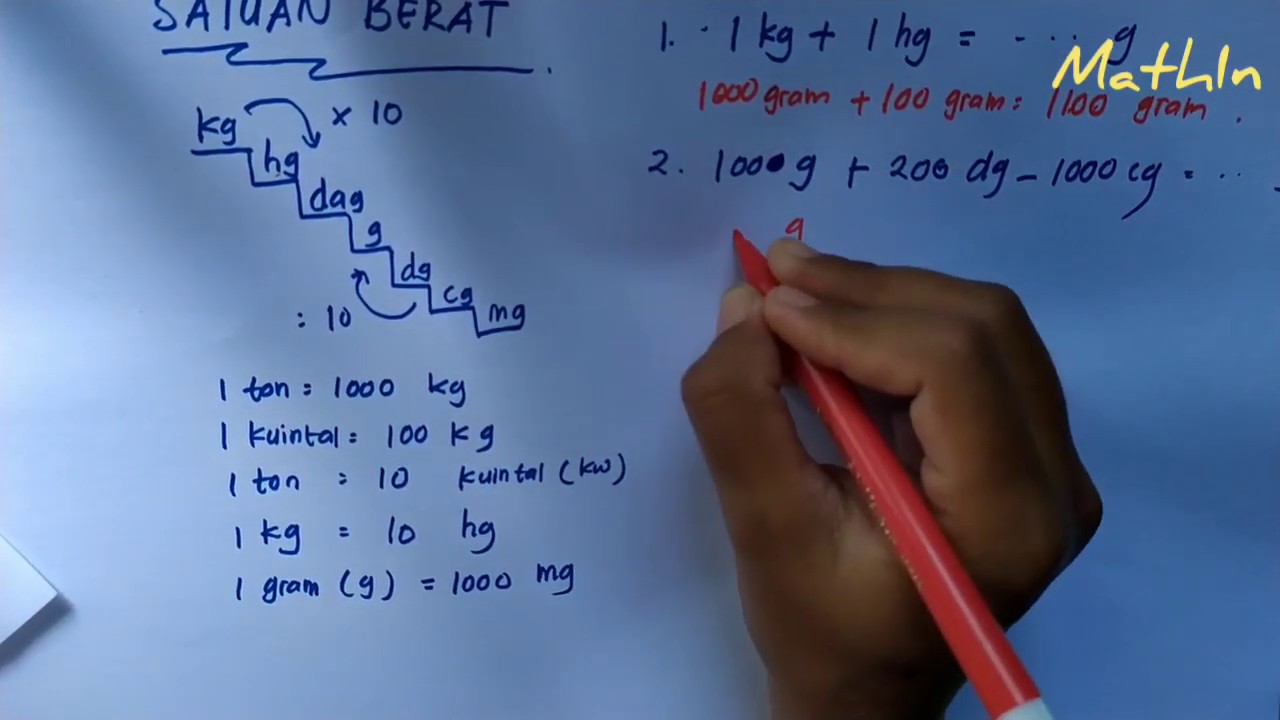 SATUAN BERAT
kg
x 10
hg
dag
g
dg
cg
mg
: 10
1 ton = 1000 kg
1 kuintal = 100 kg
1 ton = 10 kuintal (kw)
1 kg = 10 hg
1 gram (g) = 1000 mg
1. 1 kg + 1 hg = .... g
MathIn
1000 gram + 100 gram = 1100 gram.
2. 1000 g + 200 dg - 1000 cg = ...
g